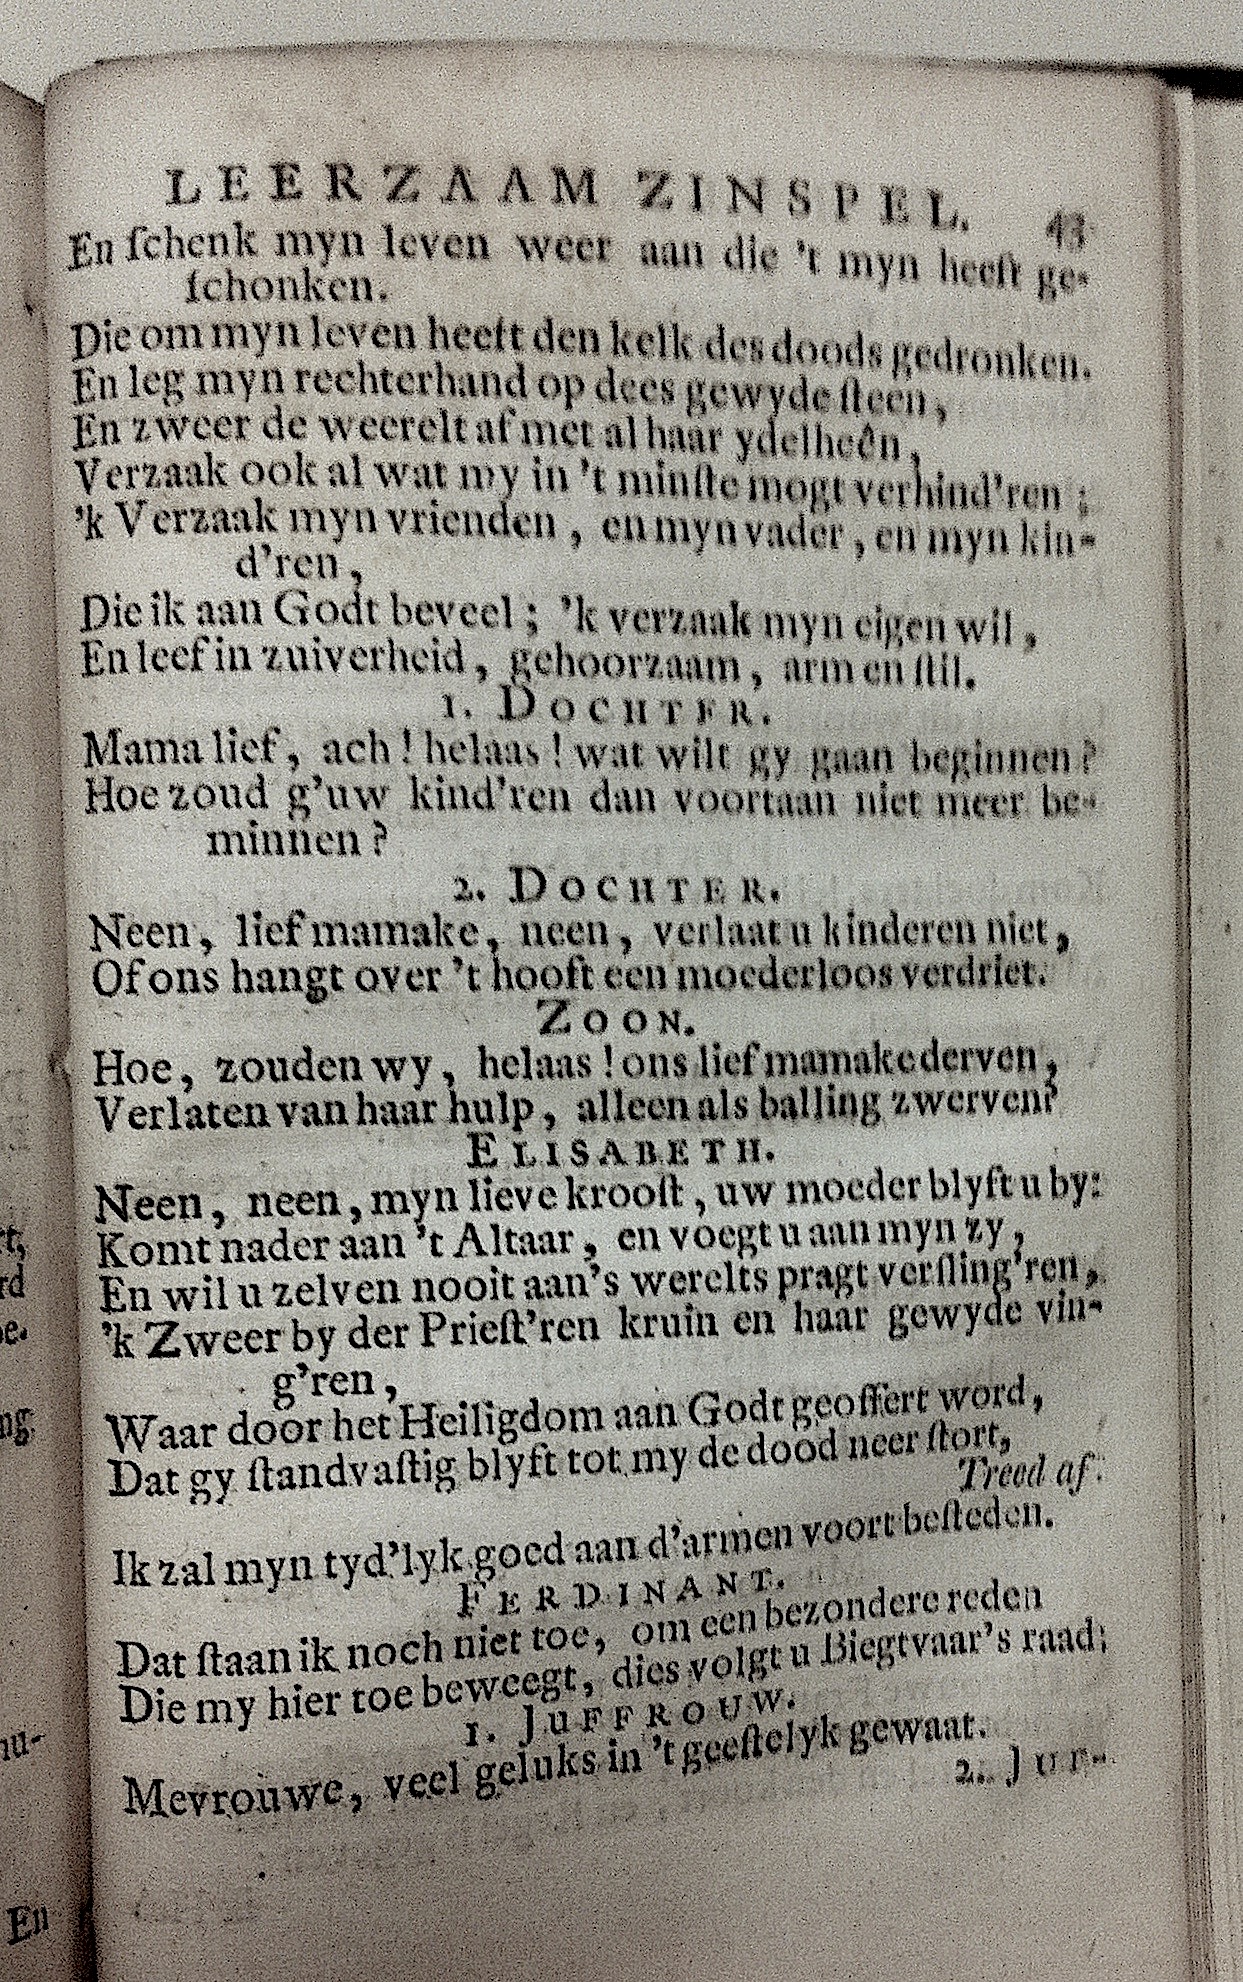 LEERZAAM ZINSPEL. 43
En ſchenk myn leven weer aan die 't myn heeft ge-
ſchonken.
Die om myn leven heeft den kelk des doods gedronken.
En leg myn rechterhand op dees gewyde ſteen,
En zweer de weerelt af met al haar ydelheên,
Verzaak ook al wat my in 't minſte mogt verhind'ren;
'k Verzaak myn vrienden, en myn vader, en myn kin-
d'ren,
Die ik aan Godt beveel; 'k verzaak myn eigen wil,
En leef in zuiverheid, gehoorzaam, arm en ſtil.
1. DOCHTER.
Mama lief, ach! helaas! wat wilt gy gaan beginnen?
Hoe zoud g'uw kind'ren dan voortaan niet meer be-
minnen?
2. DOCHTER.
Neen, lief mamake, neen, verlaat u kinderen niet,
Of ons hangt over 't hooft een moederloos verdriet.
ZOON.
Hoe, zouden wy, helaas! ons lief mamake derven,
Verlaten van haar hulp, alleen als balling zwerven?
ELISABETH.
Neen, neen, myn lieve krooſt, uw moeder blyft u by:
Komt nader aan 't Altaar, en voegt u aan myn zy,
En wil u zelven nooit aan 's werelts pragt verſling'ren,
'k Zweer by der Prieſt'ren kruin en haar gewyde vin-
g'ren,
Waar door het Heiligdom aan Godt geoffert word,
Dat gy ſtandvaſtig blyft tot my de dood neer ſtort,
Treed af.
Ik zal myn tyd'lyk goed aan d'armen voort beſteden.
FERDINANT.
Dat ſtaan ik noch niet toe, om een bezondere reden
Die my hier toe beweegt, dies volgt u Biegtvaar's raad;
1. JUFFROUW.
Mevrouwe, veel geluks in 't geeſtelyk gewaat.
2. JUF-
rd
ng
En